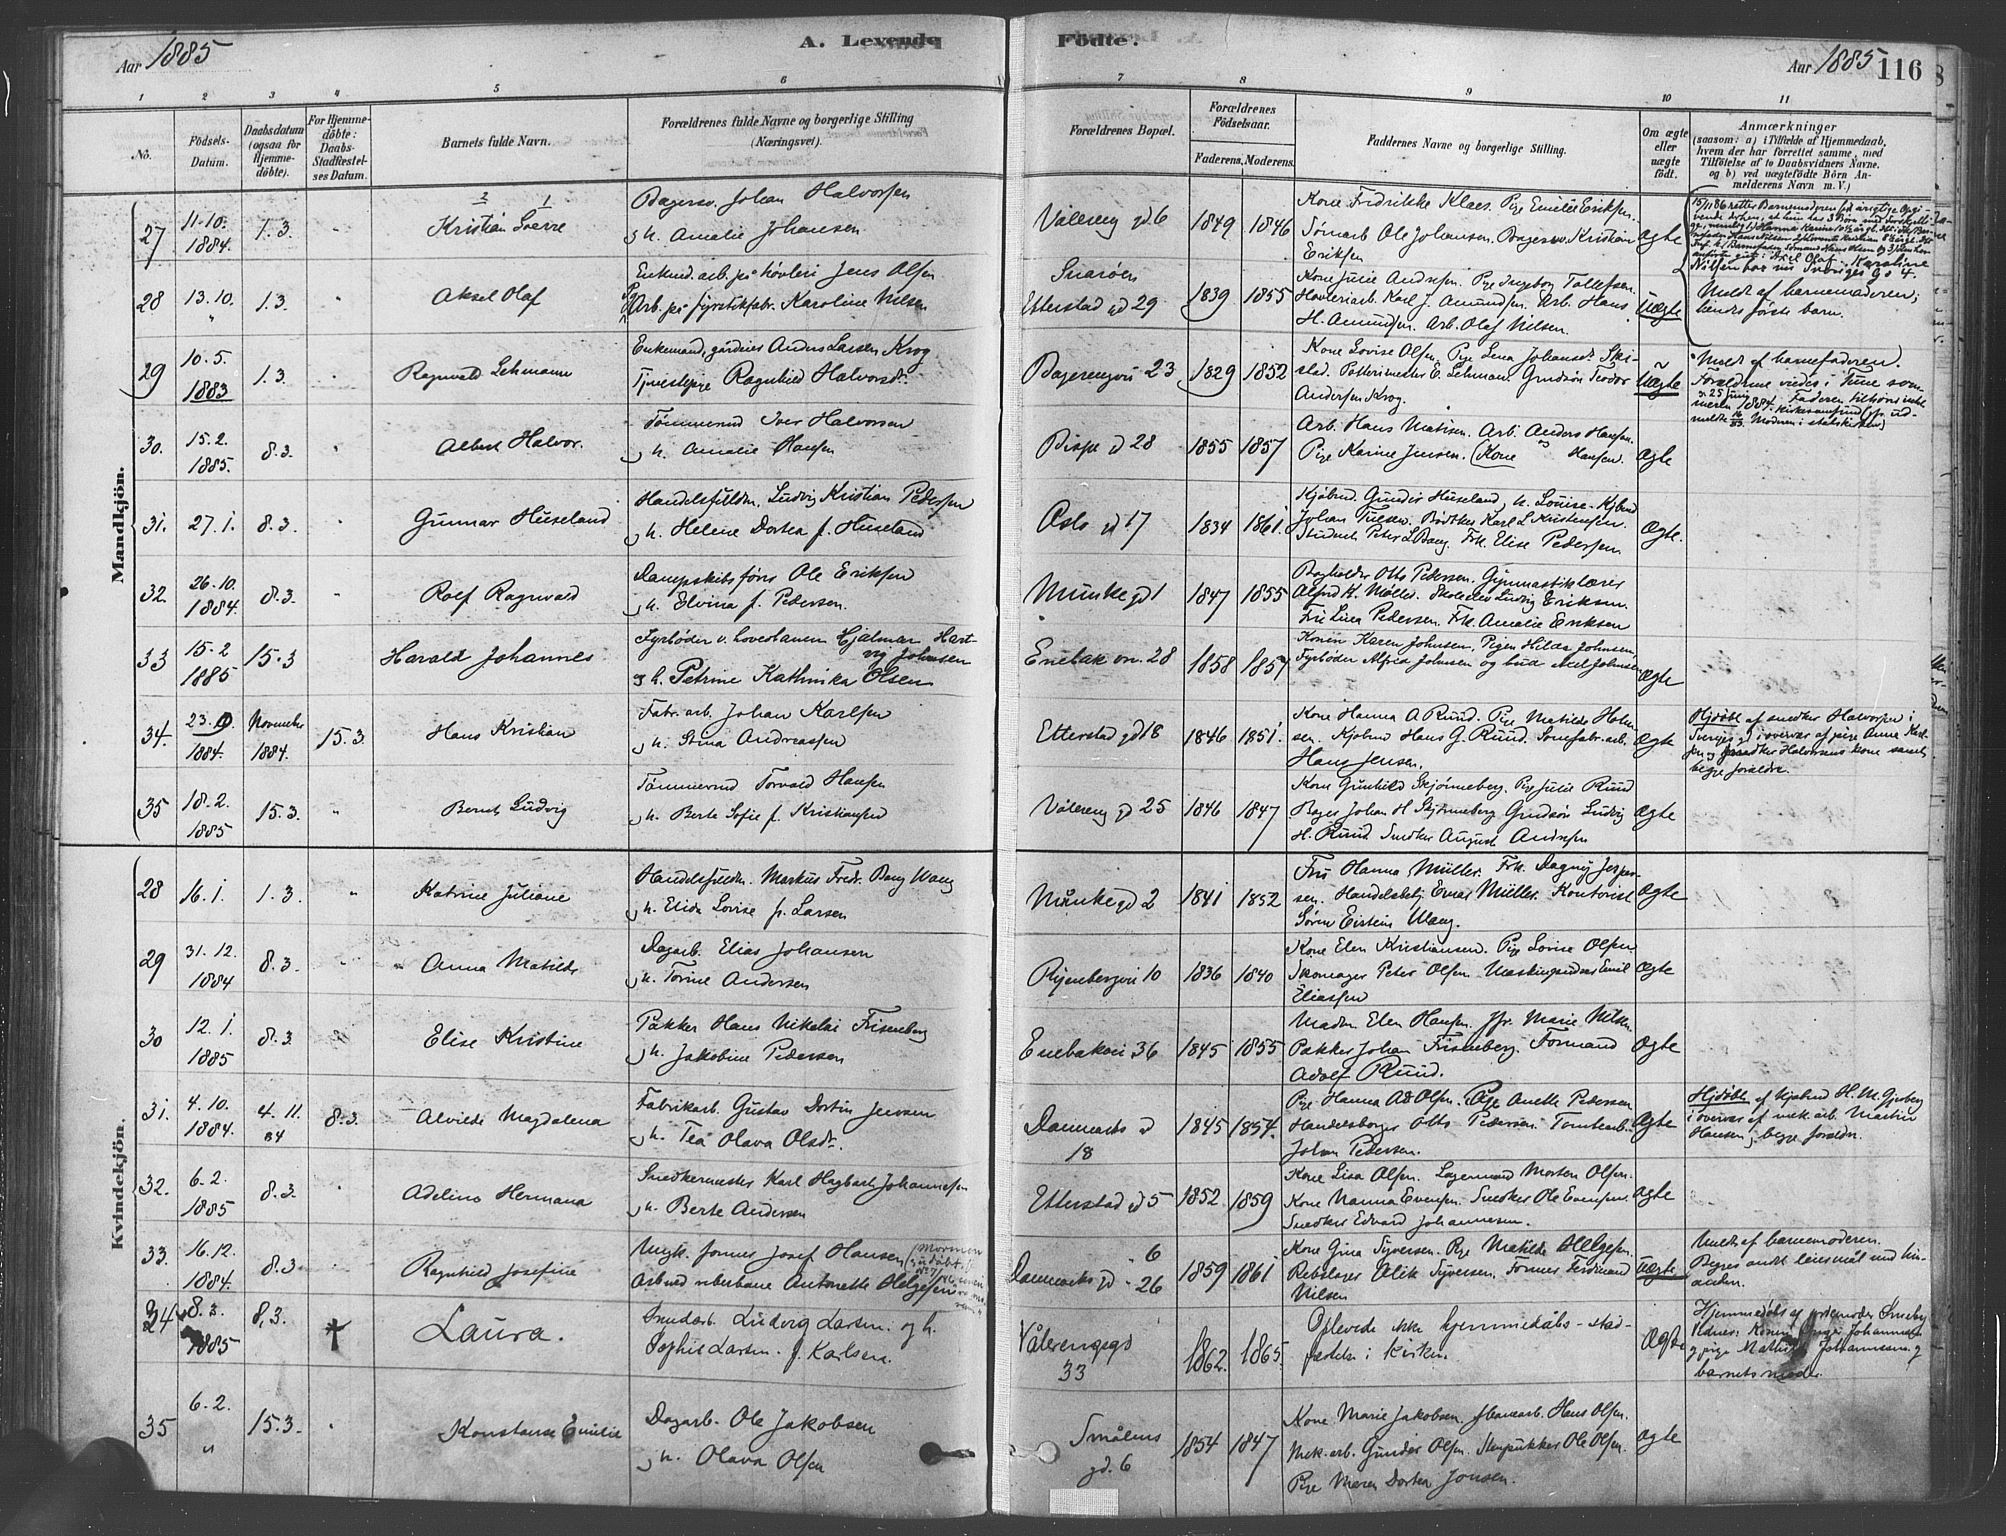 Aar 1885
A. Levende Fødte.
Aar 1885 116
1 2 3 4 5 6 7 8 9 10 11
No.
Fødsels-
Datum.
Daabsdatum
(ogsaa for
Hjemme-
døbte).
For Hjemme-
døbte:
Daabs-
Stadfæstel-
ses Datum.
Barnets fulde Navn.
Forældrenes fulde Navne og borgerlige Stilling
(Næringsvei).
Forældrenes Bopæl.
Forældrenes
Fødselsaar.
Faderens. Moderens.
Faddernes Navne og borgerlige Stilling.
Om ægte
eller
uægte
født.
Anmærkninger
(saasom: a) i Tilfælde af Hjemmedaab,
hvem der har forrettet samme, med
Tilføielse af to Daabsvidners Navne.
og b) ved uægtefødte Børn An-
melderens Navn m. V.)
Mandkjøn.
27 11.10. 1884. 1.3.
2 1
Kristian Sverre
Bagersv. Johan Halvorsen
og h. Amalie Johansen
Vålereng gd 6 1849 1846
Kone Fredrikke Klaes. Pige Emilie Eriksen.
Tømarb Ole Johansen. Bagersv. Kristian
Eriksen
Ægte
28 13.10. " 1.3. "
Aksel Olaf
Enkemd. arb. på høvleri Jens Olsen
Arb. på fyrstikfabr. Karoline Nilsen
Etterstad gd 29 1839 1855
Kone Julie Andersen. Pige Ingeborg Tollefsen.
Høvleriarb. Karl J. Amundsen. Arb. Hans
H. Amundsen. Arb. Olaf Nilsen.
Uægte
Nilsen bor nu Sveriges gd 4.
Meldt af barnemoderen;
hendes første barn.
29 10.5. 1883 1.3. "
Ragnvald Lehmann
Enkemand, gårdeier Anders Larsen Krog
Tjenestepige Ragnhild Halvorsdr.
Bagerengvei 23 1829 1852
Kone Lovise Olsen. Pige Lena Johansdr. Ski-
stad. Pottemester E. Lehman. Grudsøn Teodor
Andersen Krog.
Uægte
Meldt af barnefaderen.
Forældrene viedes i Tune som-
meren 1884.
30. 15.2. 1885. 8.3. "
Albert Halvor.
Tømmermd Iver Halvorsen
og h. Amalie Hansen
Bispe gd 28 1855 1857
Arb. Hans Matisen. Arb. Anders Hansen.
Pige Karine Jensen. (Kone Hansen.
Ægte
31. 27.1. 8.3. "
Gunnar Huseland
Handelsfuldm. Ludvig Kristian Pedersen
og h. Helene Dortea f. Huseland
Oslo gd 17 1834 1861.
Kjøbmd. Gunder Huseland, h. Louise. Kjbmd
Johan Tuesen. Bødtker Karl L Kristensen.
Student Peter L Bang. Frk. Elise Pedersen
Ægte.
32. 26.10. 1884. 8.3. "
Rolf Ragnvald
Dampskibsfører Ole Eriksen
og h. Elvina f. Pedersen.
Munkegd 1 1847 1855
Bogholder Otto Pedersen. Gymnastiklærer
Alfred H. Møller. Skoleelev Ludvig Eriksen.
Fru Lina Pedersen. Frk. Amalie Eriksen
33 15.2 1885 15.3
Harald Johannes
Fyrbøder v. hovedbanen Hjalmar Hart-
vig Johnsen
og h. Petrine Kathinka Olsen
Enebak vn. 28 1858 1857
Konen Karen Johnsen, Pigen Hilda Johnsen,
Fyrbøder Alfred Johnsen og bud Axel Johnsen
Ægte
34. 23. 1884. November 1884. 15.3.
Hans Kristian
Fabr. arb. Johan Karlsen
og h. Stina Andreassen
Etterstad gd 18 1846 1851.
Kone Hanna A Ruud. Pige Matilde Holm-
sen. Kjøbmd Hans G. Ruud. Sømfabr. arb.
Hans Jensen.
Ægte
Hjdøbt af snedker Halvorsen i
Sveriges gd i overvær af pige Anne Karl-
sen og snedker Halvorsens kone samt
begge forældre.
35 18.2. 1885 15.3. "
Bernt Ludvig
Tømmermd Torvald Hansen
og h. Berte Sofie f. Kristiansen
Vålereng gd 25 1846 1847
Kone Gunhild Skjønneberg. Pige Julie Ruud
Bager Johan H Skjønneberg Grudsøn Ludvig
H. Ruud Snedker August Andersen
Ægte
Kvindekjøn.
28 16.1. 1.3. "
Katrine Juliane
Handelsfuldm. Markus Fredr. Bang Waag
og h. Elida Lovise f. Larsen
Munkegd 2 1841 1852
Fru Hanna Müller. Frk. Dagny Jesper-
sen. Handelsbetj. Einar Müller. Kontorist
Søren Eistein Waag.
Ægte
29 31.12. 1884 8.3. "
Anna Matilde
Dagarb. Elias Johansen
og h. Torine Andersen
Ryenbergvei 10 1836 1840
Kone Elen Kristiansen. Pige Lovise Olsen
Skomager Peter Olsen. Maskinpudser Emil
Eliassen
Ægte
30 12.1. 1885 8.3.
Elise Kristine
Pakker Hans Nikolai Frisenberg
og h. Jakobine Pedersen
Enebakvei 36 1845 1855
Madm Elen Hansen. Jfr. Marie Nilsen.
Pakker Johan Frisenberg. Formand
Adolf Ruud.
Ægte
31. 4.10. 1884. 4.11. 84 8.3.
Alvilde Magdalena
Fabrikarb. Gustav Dortin Jensen
og h. Tea Olava Olsdr.
Danmarks gd 18 1845 1854.
Pige Hanna Ad Olsen. Pige Anette Pedersen
Handelsborger Otto Pedersen. Tomtearb.
Johan Pedersen.
Ægte
Hjdøbt af kjøbmd H. M. Gjerberg
i overvær af mek. arb. Martin
Hansen; begge forældr.
32. 6.2. 1885 8.3. "
Adeline Hermana
Snedkermester Karl Hagbart Johannesen
og h. Berte Andersen
Etterstad gd 5 1852. 1859
Kone Lisa Olsen. Lagermand Morten Olsen.
Kone Nanna Evensen. Snedker Ole Evensen.
Snedker Edvard Johannesen.
Ægte
33. 16.12. 1884. 8.3
Ragnhild Josefine
Ungk. former Josef Hansen
Arb. ved reberbane Antonette Helgesen
Danmarks gd 6 26 1859 1861
Kone Gina Syversen. Pige Matilde Helgesen.
Rebslager Ulik Syversen. Former Ferdinand
Nilsen
Uægte
Meldt af barnemoderen.
Begges andet leiermål med hin-
anden.
34 8.2. 1885 8.3. †
Laura.
Smedarb. Ludvig Larsen. og h.
Sophie Larsen. f. Karlsen.
Vålerengsgd 33 1862. 1865.
Oplevede ikke hjemmedåbs-stad-
fæstelse i kirken.
Ægte
Hjemmedøbt af jordemoder
barnets moder.
35 6.2. " 15.3. "
Konstanse Emilie
Dagarb. Ole Jakobsen
og h. Olava Olsen
Smålens gd. 6 1854 1847
Kone Marie Jakobsen. Hans Olsen.
Mek. arb. Gunder Olsen. Stenpukker Ole Olsen.
Pige Maren Dortea Jonsen.
Ægte